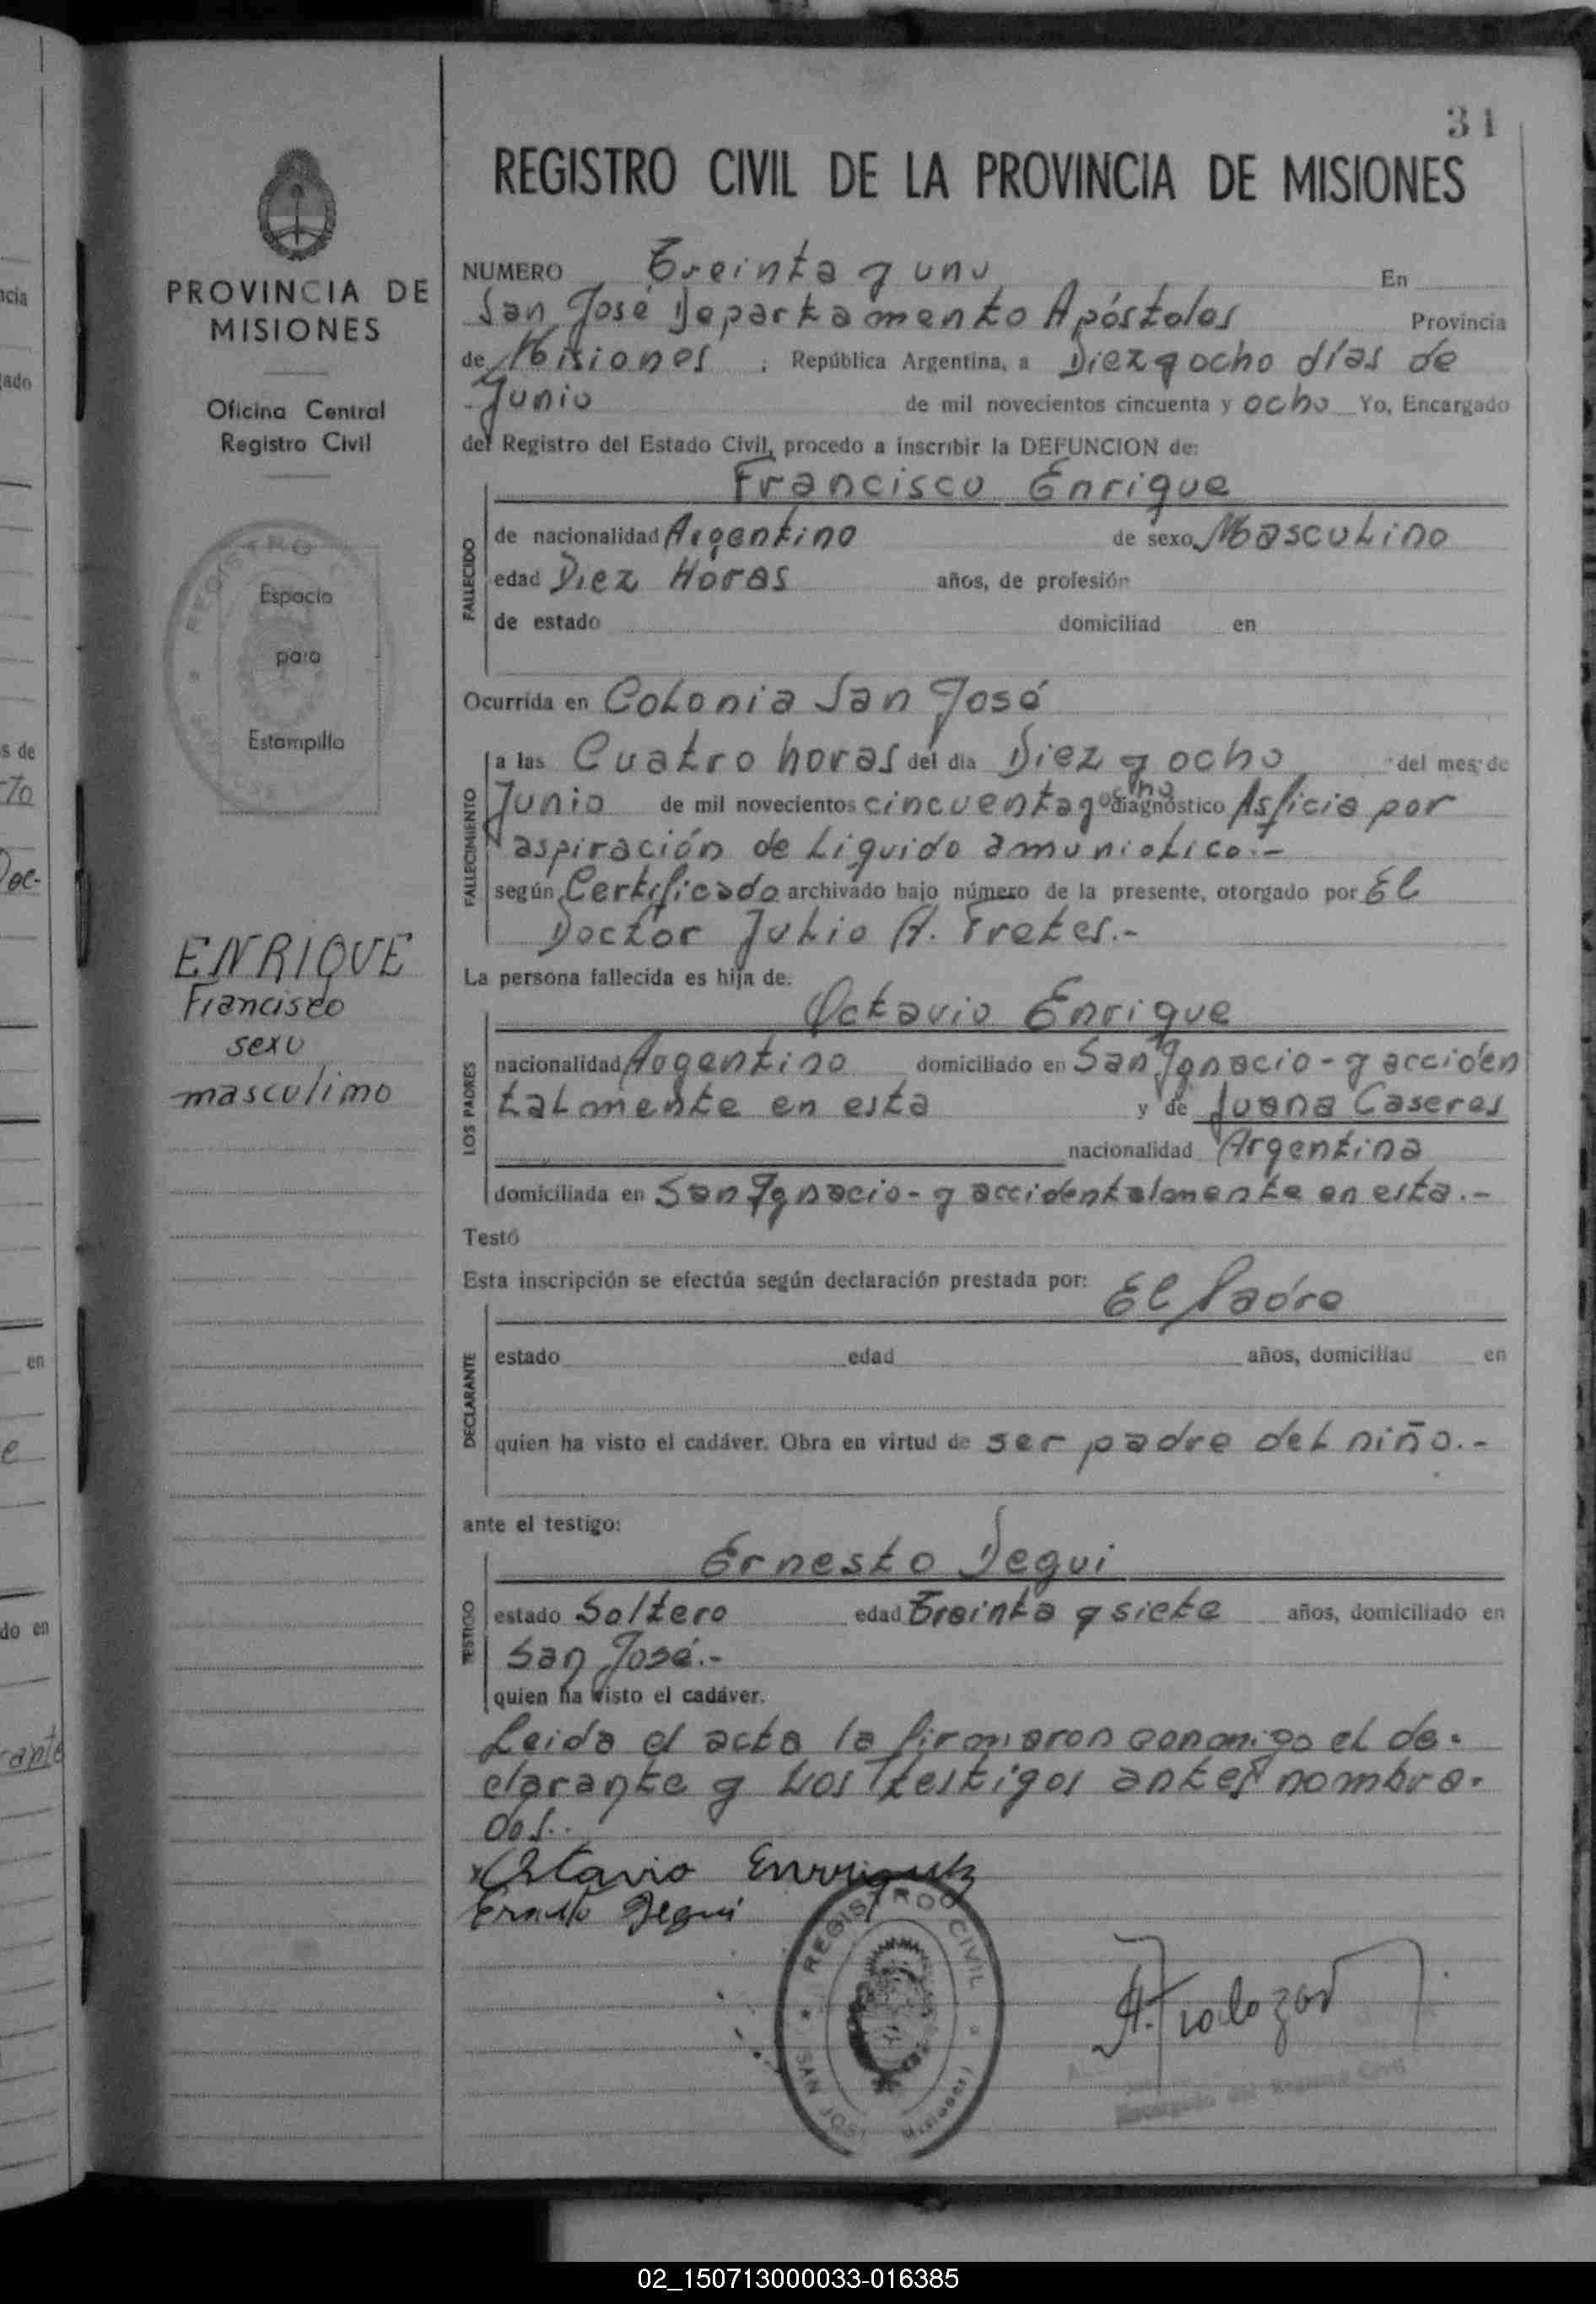 31
REGISTRO CIVIL DE LA PROVINCIA DE MISIONES
PROVINCIA DE
MISIONES
Oficina Central
Registro Civil
Espacio
para
Estampilla
ENRIQUE
Francisco
sexo
masculimo
NUMERO Treinta y uno En
San José Departamento Apóstoles Provincia
de Misiones ; República Argentina, a Diez y ocho días de
Junio de mil novecientos cincuenta y ocho Yo, Encargado
del Registro del Estado Civil, procedo a inscribir la DEFUNCION de:
Francisco Enrique
FALLECIDO
de nacionalidad Argentino de sexo Masculino
edad Diez Horas años, de profesión
de estado domiciliad en
Ocurrida en Colonia San José
FALLECIMIENTO
a las Cuatro horas del día Diez y ocho del mes de
Junio de mil novecientos cincuenta y ocho diagnóstico Asficia por
aspiración de liquido amuniotico.-
según Certificado archivado bajo número de la presente, otorgado por El
Doctor Julio A. Fretes.-
La persona fallecida es hija de:
LOS PADRES
Octavio Enrique
nacionalidad Argentino domiciliado en San Ignacio - y acciden
talmente en esta y de Juana Caseres
nacionalidad Argentina
domiciliada en San Ignacio - y accidentalmente en esta.-
Testó
Esta inscripción se efectúa según declaración prestada por:
El Padre
DECLARANTE
estado edad años, domiciliad en
quien ha visto el cadáver. Obra en virtud de ser padre del niño.-
ante el testigo:
Ernesto Degui
TESTIGO
estado Soltero edad Treinta y siete años, domiciliado en
San José.-
quien ha visto el cadáver.
Leida el acta la firmaron conmigo el de-
clarante y los testigos antes nombra-
dos.-
Octavio Enrriquez
Ernesto Degui
REGISTRO CIVIL
SAN JOSE (Misiones)
Encargado del Registro Civil
02_150713000033-016385